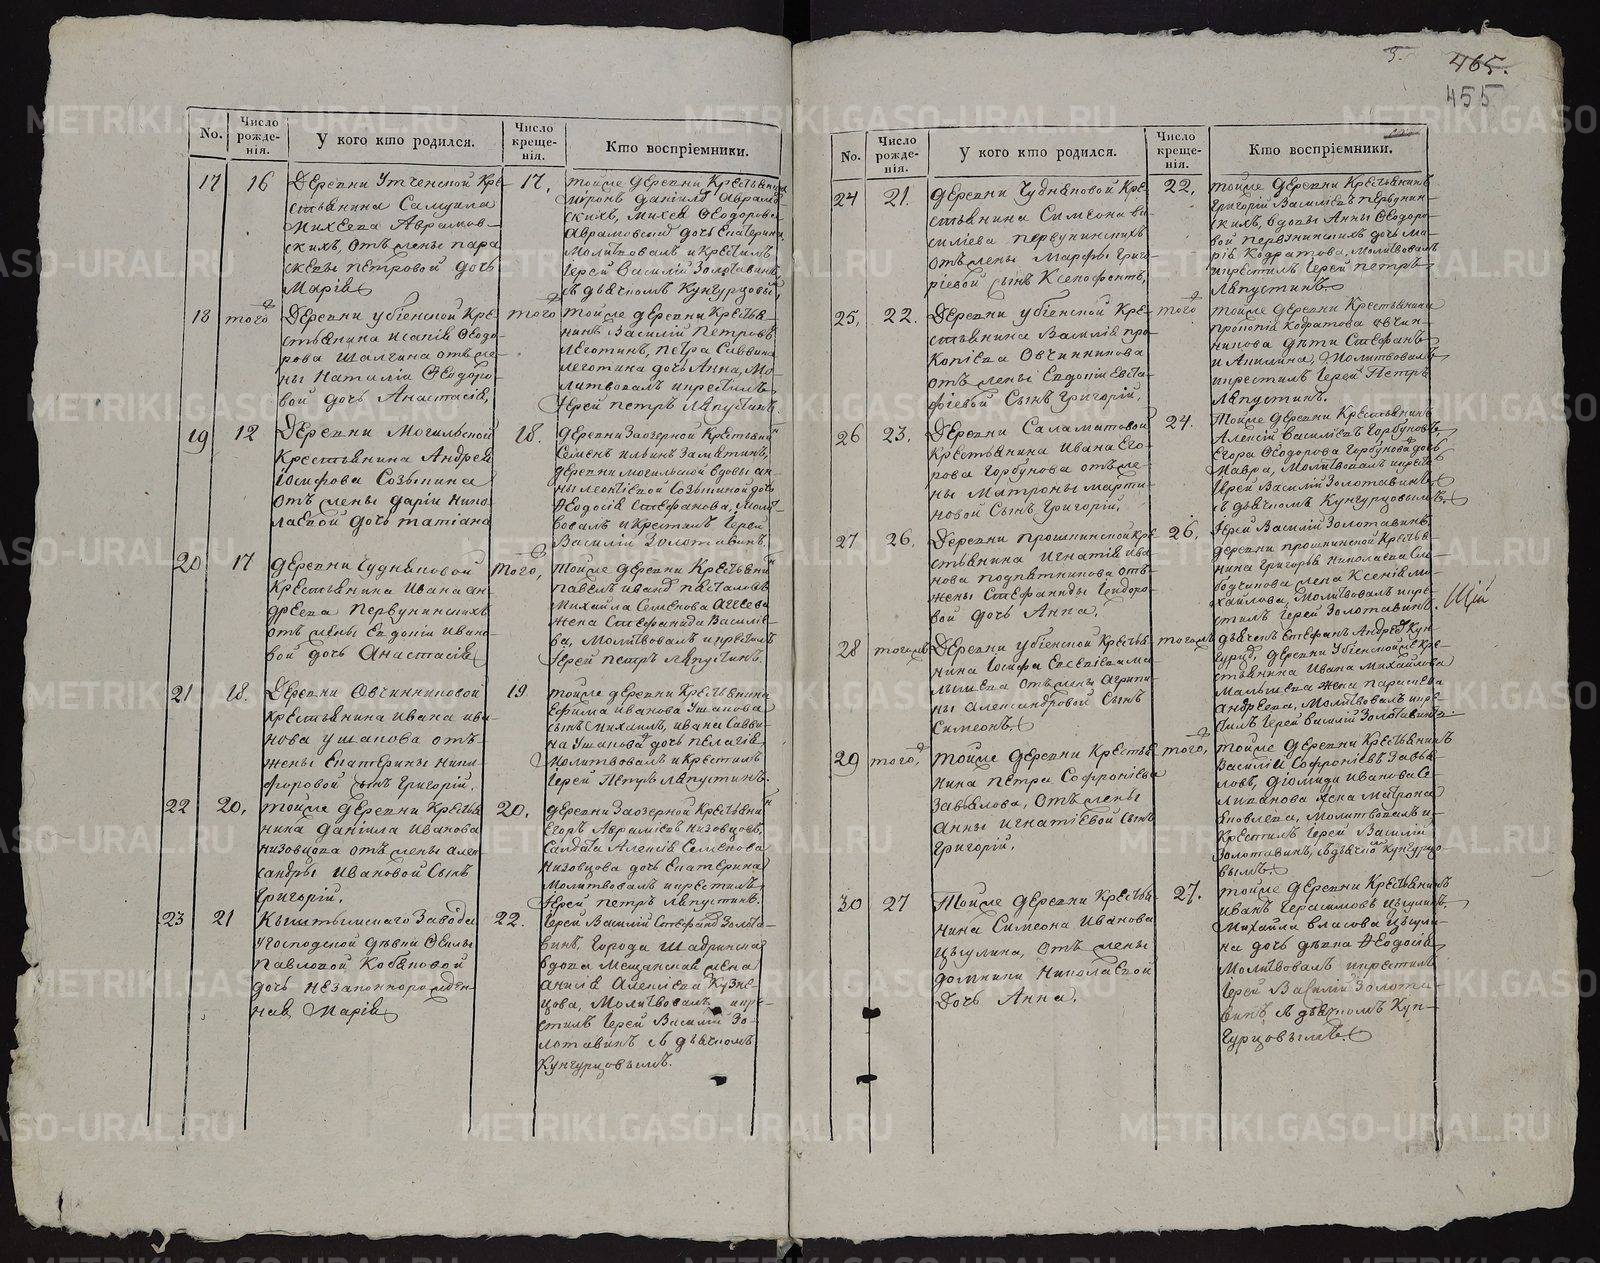 5.
465.
455
No.
Число рожденія.
У кого кто родился.
Число крещенія.
Кто воспріемники.
17
16
Деревни Утченской Кре-
стьянина Самуила
Михеева Аврамов-
скихъ, отъ жены пара
скевы петровой дочь
Марія
17.
тойже деревни Крестьянина
Миронъ Даніилъ Аврамов-
скихъ, Михея Ѳеодорова
Аврамовский дочь Екатерина
Молитвовалъ и Крестилъ
Іерей Василій Золотавинъ
съ дьячкомъ Кунгурцовымъ,
18
того
Деревни убіенской Кре-
стьянина Исакія Ѳеодо-
рова Шалгина отъ же-
ны Наталіи Ѳеодоро-
вой дочь Анастасія,
того
тойже деревни Крестья-
нинъ Василій Петровъ
леготинъ, петра Саввина
леготина дочь Анна, Мо-
литвовалъ и крестилъ
Іерей петръ Ляпустинъ.
19
12
Деревни Могильской
Крестьянина Андрея
Іосифова Созыкина
отъ жены дарьи Нико-
лаевой дочь татіана
18.
деревни Заозерной Крестьянинъ
Семенъ ильинъ Замятинъ,
деревни могильской вдовы ан-
ны леонтіевой Созыкиной дочь
Ѳеодосія Стефанова, Молит-
вовалъ и Крестилъ Іерей
Василій Золотавинъ
20
17
деревни Чудняковой
Крестьянина Ивана ан-
дреева первунинскихъ
отъ жены Евдокіи ивано-
вой дочь Анастасія
того,
тойже деревни Крестьянинъ
павелъ ивановъ
Михайла Семенова Агеева
жена Стефанида Василіе-
ва, Молитвовалъ и крестилъ
Іерей петръ Ляпустинъ.
21
18.
Деревни Овчинниковой
Крестьянина ивана ива-
нова ушакова отъ
жены Екатерины Ники-
форовой сынъ Григорій.
19
тойже деревни Крестьянина
Ефима иванова Ушакова
сынъ Михаилъ, ивана Савви-
на Ушакова дочь пелагія,
Молитвовалъ и Крестилъ
Іерей Петръ Ляпустинъ.
22
20,
тойже деревни Крестья-
нина даніила Иванова
низовцова отъ жены алек-
сандры Ивановой Сынъ
Григорій.
20.
деревни Заозерной Крестьянинъ
Егоръ Авраміевъ низовцовъ,
Солдата Алексія Семенова
Низовцова дочь Екатерина
Молитвовалъ и крестилъ
Іерей петръ Ляпустинъ.
23
21
Кыштымскаго Завода
у господской дѣвки Ѳеклы
Павловой Кобяковой
дочь незаконнорожден-
ная Марія
22.
Іерей Василій Стефановъ Золота-
винъ, города Шадринска
вдова Мещанская жена
Алексіева Кузне-
цова, Молитвовалъ и кре-
стилъ Іерей Василій Зо-
лотавинъ съ дьячкомъ
Кунгурцовымъ.
No.
Число рожденія.
У кого кто родился.
Число крещенія.
Кто воспріемники.
24
21.
деревни Чудняковой Кре-
стьянина Симеона ва-
силіева первунинскихъ
отъ жены Марфы григо-
ріевой сынъ Ксенофонтъ,
22,
тойже деревни Крестьянинъ
Григорій Василіевъ первунин-
скихъ, вдовы Анны Ѳеодоро-
вой первунинскихъ дочь Ма-
рія Кодратова, Молитвовалъ
и крестилъ Іерей петръ
Ляпустинъ
25,
22.
Деревни убіенской Кре-
стьянина Василія про-
копіева Овчинникова
отъ жены Евдокіи Евста-
фіевой Сынъ Григорій.
того
тойже деревни Крестьянина
прокопія Кодратова овчин-
никова дѣти Стефанъ
и Акилина, Молитвовалъ
и крестилъ Іерей Петръ
Ляпустинъ.
26
23.
Деревни Саламатовой
Крестьянина Ивана Его-
рова Горбунова отъ же-
ны Матроны марти-
новой Сынъ Григорій.
24.
Тойже деревни Крестьянинъ
Алексій Василіевъ Горбуновъ,
Егора Ѳеодорова Горбунова дочь
Мавра, Молитвовалъ и крестилъ
Іерей Василій Золотавинъ
съ дьячкомъ Кунгурцовымъ.
27
26.
Деревни прошкинской Кре-
стьянина Игнатія ива-
нова подпятникова отъ
жены Стефаниды Ѳеодоро-
вой дочь Анна.
26.
Іерей Василій Золотавинъ,
деревни прошкинской Крестья-
нина Григорья николаева Сло-
бодчикова жена Ксенія ми-
хайлова, Молитвовалъ и кре-
стилъ Іерей Золотавинъ.
28
тогожъ
Деревни убіенской Крестья-
нина Іосифа Евсевіева ма-
лышева отъ жены Агрипи-
ны александровой Сынъ
Симеонъ.
тогожъ
дьячекъ Стефанъ Андреевъ Кун-
гурцовъ, деревни Убіенской Кре-
стьянина Ивана Михайлова
Малышева жена параскева
андреева, Молитвовалъ и кре-
стилъ Іерей Василій Золотавинъ.
29
того,
тойже деревни Крестья-
нина петра Софроніева
Завьялова, отъ жены
анны игнатіевой Сынъ
Григорій.
того,
тойже деревни Крестьянинъ
Василій Софроніевъ Завья-
ловъ, діомида иванова Се-
ливанова жена Матрона
Яковлева, Молитвовалъ и
Крестилъ Іерей Василій
Золотавинъ, съ дьячкомъ Кунгурцо-
вымъ.
30
27
Тойже деревни Крестья-
нина Симеона Иванова
цыулина, отъ жены
домники Николаевой
Дочь Анна.
27.
тойже деревни Крестьянинъ
иванъ Герасимовъ цыулинъ,
Михайла власова цыули-
на дочь дѣвка Ѳеодосія
Молитвовалъ и крестилъ
Іерей Василій Золота-
винъ съ дьячкомъ Кун-
гурцовымъ.
METRIKI.GASO-URAL.RU